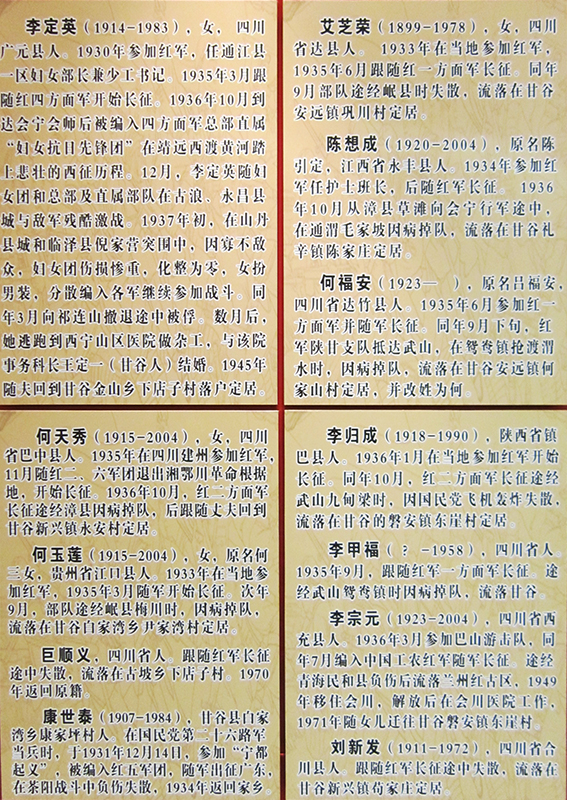 李定英（1914-1983），女，四川
广元县人。1930年参加红军，任通江县
一区妇女部长兼少工书记。1935年3月跟
随红四方面军开始长征。1936年10月到
达会宁会师后被编入四方面军总部直属
“妇女抗日先锋团”在靖远西渡黄河踏
上悲壮的西征历程。12月，李定英随妇
女团和总部及直属部队在古浪、永昌县
城与敌军残酷激战。1937年初，在山丹
县城和临泽县倪家营突围中，因寡不敌
众，妇女团伤损惨重，化整为零，女扮
男装，分散编入各军继续参加战斗。同
年3月向祁连山撤退途中被俘。数月后，
她逃跑到西宁山区医院做杂工，与该院
事务科长王定一（甘谷人）结婚。1945年
随夫回到甘谷金山乡下店子村落户定居。
艾芝荣（1899-1978），女，四川
省达县人。 1933年在当地参加红军，
1935年6月跟随红一方面军长征。同年
9月部队途经岷县时失散，流落在甘谷
安远镇巩川村定居。
陈想成（1920-2004），原名陈
引定，江西省永丰县人。1934年参加红
军任护士班长，后随红军长征。 1936
年10月从漳县草滩向会宁行军途中，
在通渭毛家坡因病掉队，流落在甘谷礼
辛镇陈家庄定居。
何福安（1923— ），原名吕福安，
四川省达竹县人。1935年6月参加红一
方面军并随红军长征。同年9月下旬，红
军陕甘支队抵达武山，在鸳鸯镇抢渡渭
水时，因病掉队，流落在甘谷安远镇何
家山村定居，并改姓为何。
何天秀（1915-2004），女，四川
省巴中县人。1935年在四川建州参加红军，
11月随红二、六军团退出湘鄂川革命根据
地，开始长征。1936年10月，红二方面军
长征途经漳县因病掉队，后跟随丈夫回到
甘谷新兴镇永安村定居。
何玉莲（1915-2004），女，原名何
三女，贵州省江口县人。1933年在当地参
加红军，1935年3月随军开始长征。次年
9月，部队途经岷县梅川时，因病掉队，
流落在甘谷白家湾乡尹家湾村定居。
巨顺义，四川省人。跟随红军长征
途中失散，流落在古坡乡下店子村。1970
年返回原籍。
康世泰（1907-1984），甘谷县白家
湾乡康家坪村人。在国民党第二十六路军
当兵时，于1931年12月14日，参加“宁都
起义”，被编入红五军团，随军出征广东，
在茶阳战斗中负伤失散，1934年返回家乡。
李归成（1918-1990），陕西省镇
巴县人。1936年1月在当地参加红军开始
长征。同年10月，红二方面军长征途经
武山九甸梁时，因国民党飞机轰炸失散，
流落在甘谷的磐安镇东崖村定居。
李甲福（ ？ -1958），四川省人。
1935年9月，跟随红军一方面军长征。途
经武山鸳鸯镇时因病掉队，流落甘谷。
李宗元（1923-2004），四川省西
充县人。1936年3月参加巴山游击队，同
年7月编入中国工农红军随军长征。途经
青海民和县负伤后流落兰州红古区，1949
年移住会川，解放后在会川医院工作，
1971年随女儿迁往甘谷磐安镇东崖村。
刘新发（1911-1972），四川省合
川县人。跟随红军长征途中失散，流落在
甘谷新兴镇苟家庄定居。